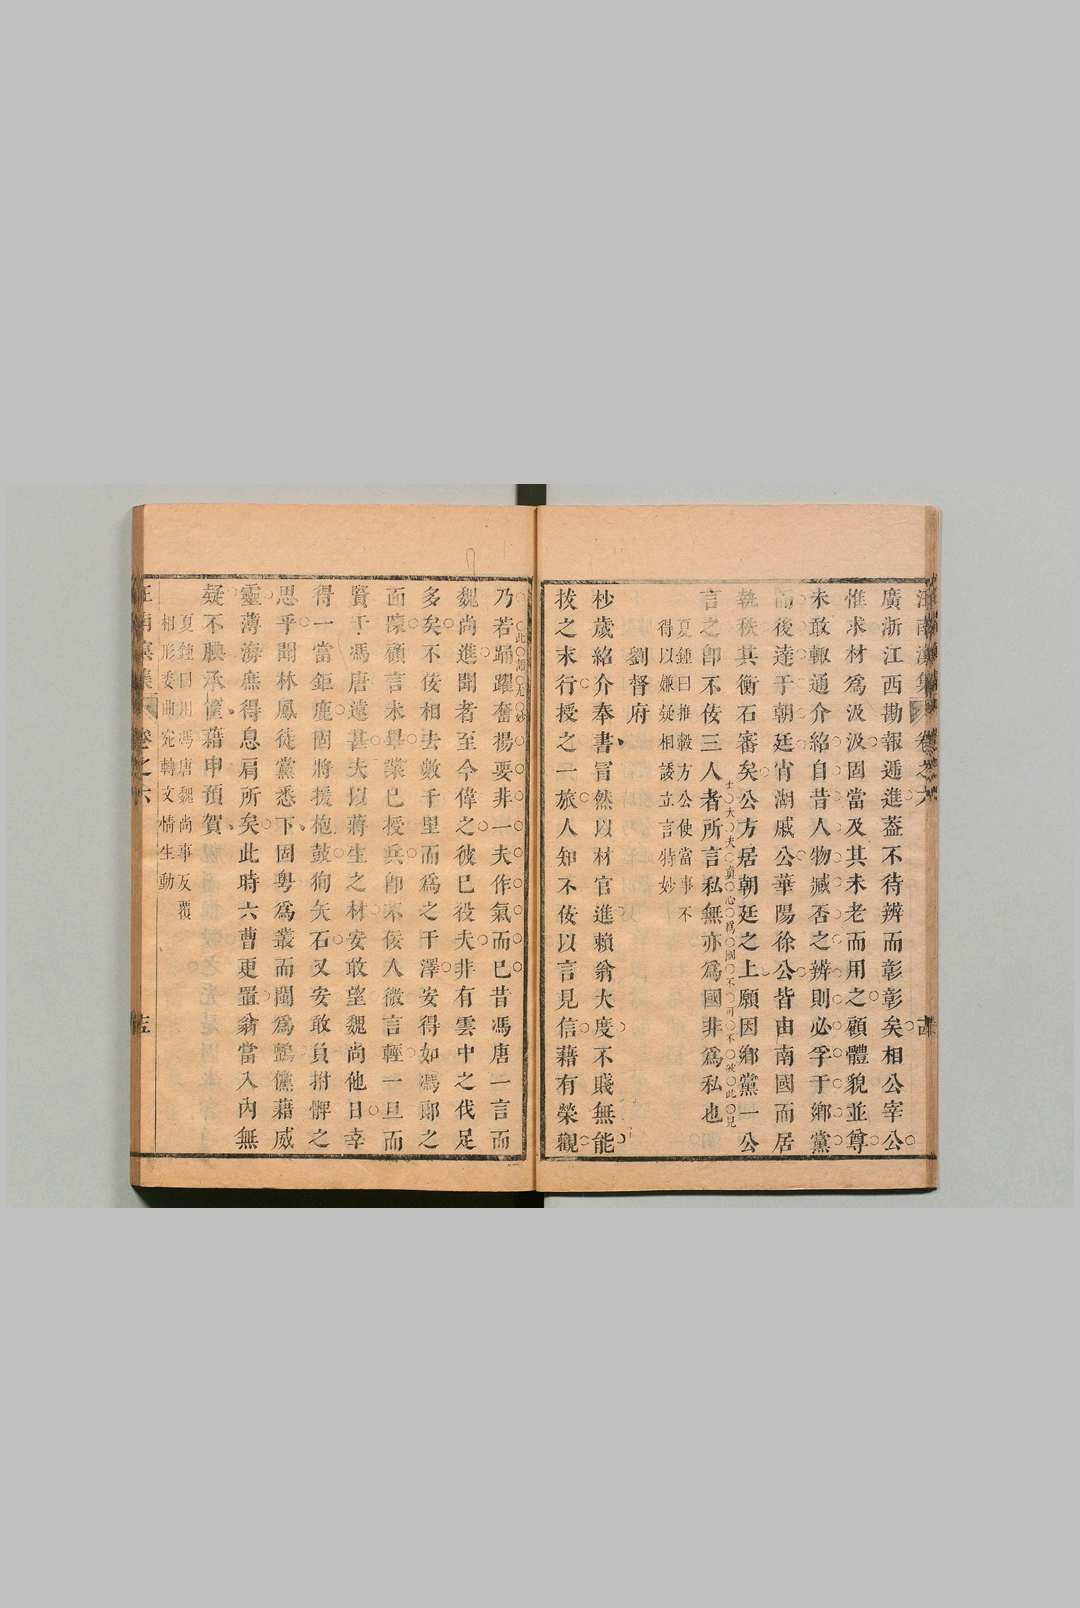 廣浙江西勘報遞進葢不待辨而彰彰矣相公宰公
惟求材爲汲汲固當及其未老而用之顧體貌並尊
未敢輙通介紹自昔人物臧否之辨則必孚于鄉黨
而後達于朝廷肯湖戚公華陽徐公皆由南國而居
執秩其衡石審矣公方居朝廷之上願因鄉黨一公
言之卽不佞三人者所言私無亦爲國非爲私也
夏鍾曰推轂方公使當事不
得以嫌疑相諉立言特妙
劉督府
杪歲紹介奉書冐然以材官進賴翁大度不賤無能
拔之末行授之一旅人知不佞以言見信藉有榮觀
乃若踊躍奮揚要非一夫作氣而巳昔馮唐一言而
魏尚進聞者至今偉之彼巳役夫非有雲中之伐足
多矣不佞相去數千里而爲之干澤安得如馮郎之
面陳顧言未畢業巳授兵卽不佞人微言輕一旦而
賢于馮唐遠甚夫以蔣生之材安敢望魏尚他日幸
得一當鉅鹿固將援枹鼓狥矢石又安敢負拊髀之
思乎聞林鳳徒黨悉下固粤爲叢而閩爲鸇儻藉威
靈薄海庶得息肩所矣此時六曹更置翁當入內無
疑不腆承筐藉申預賀
夏鍾曰用馮唐魏尚事反覆
相形委曲宛轉文情生動
卷之六